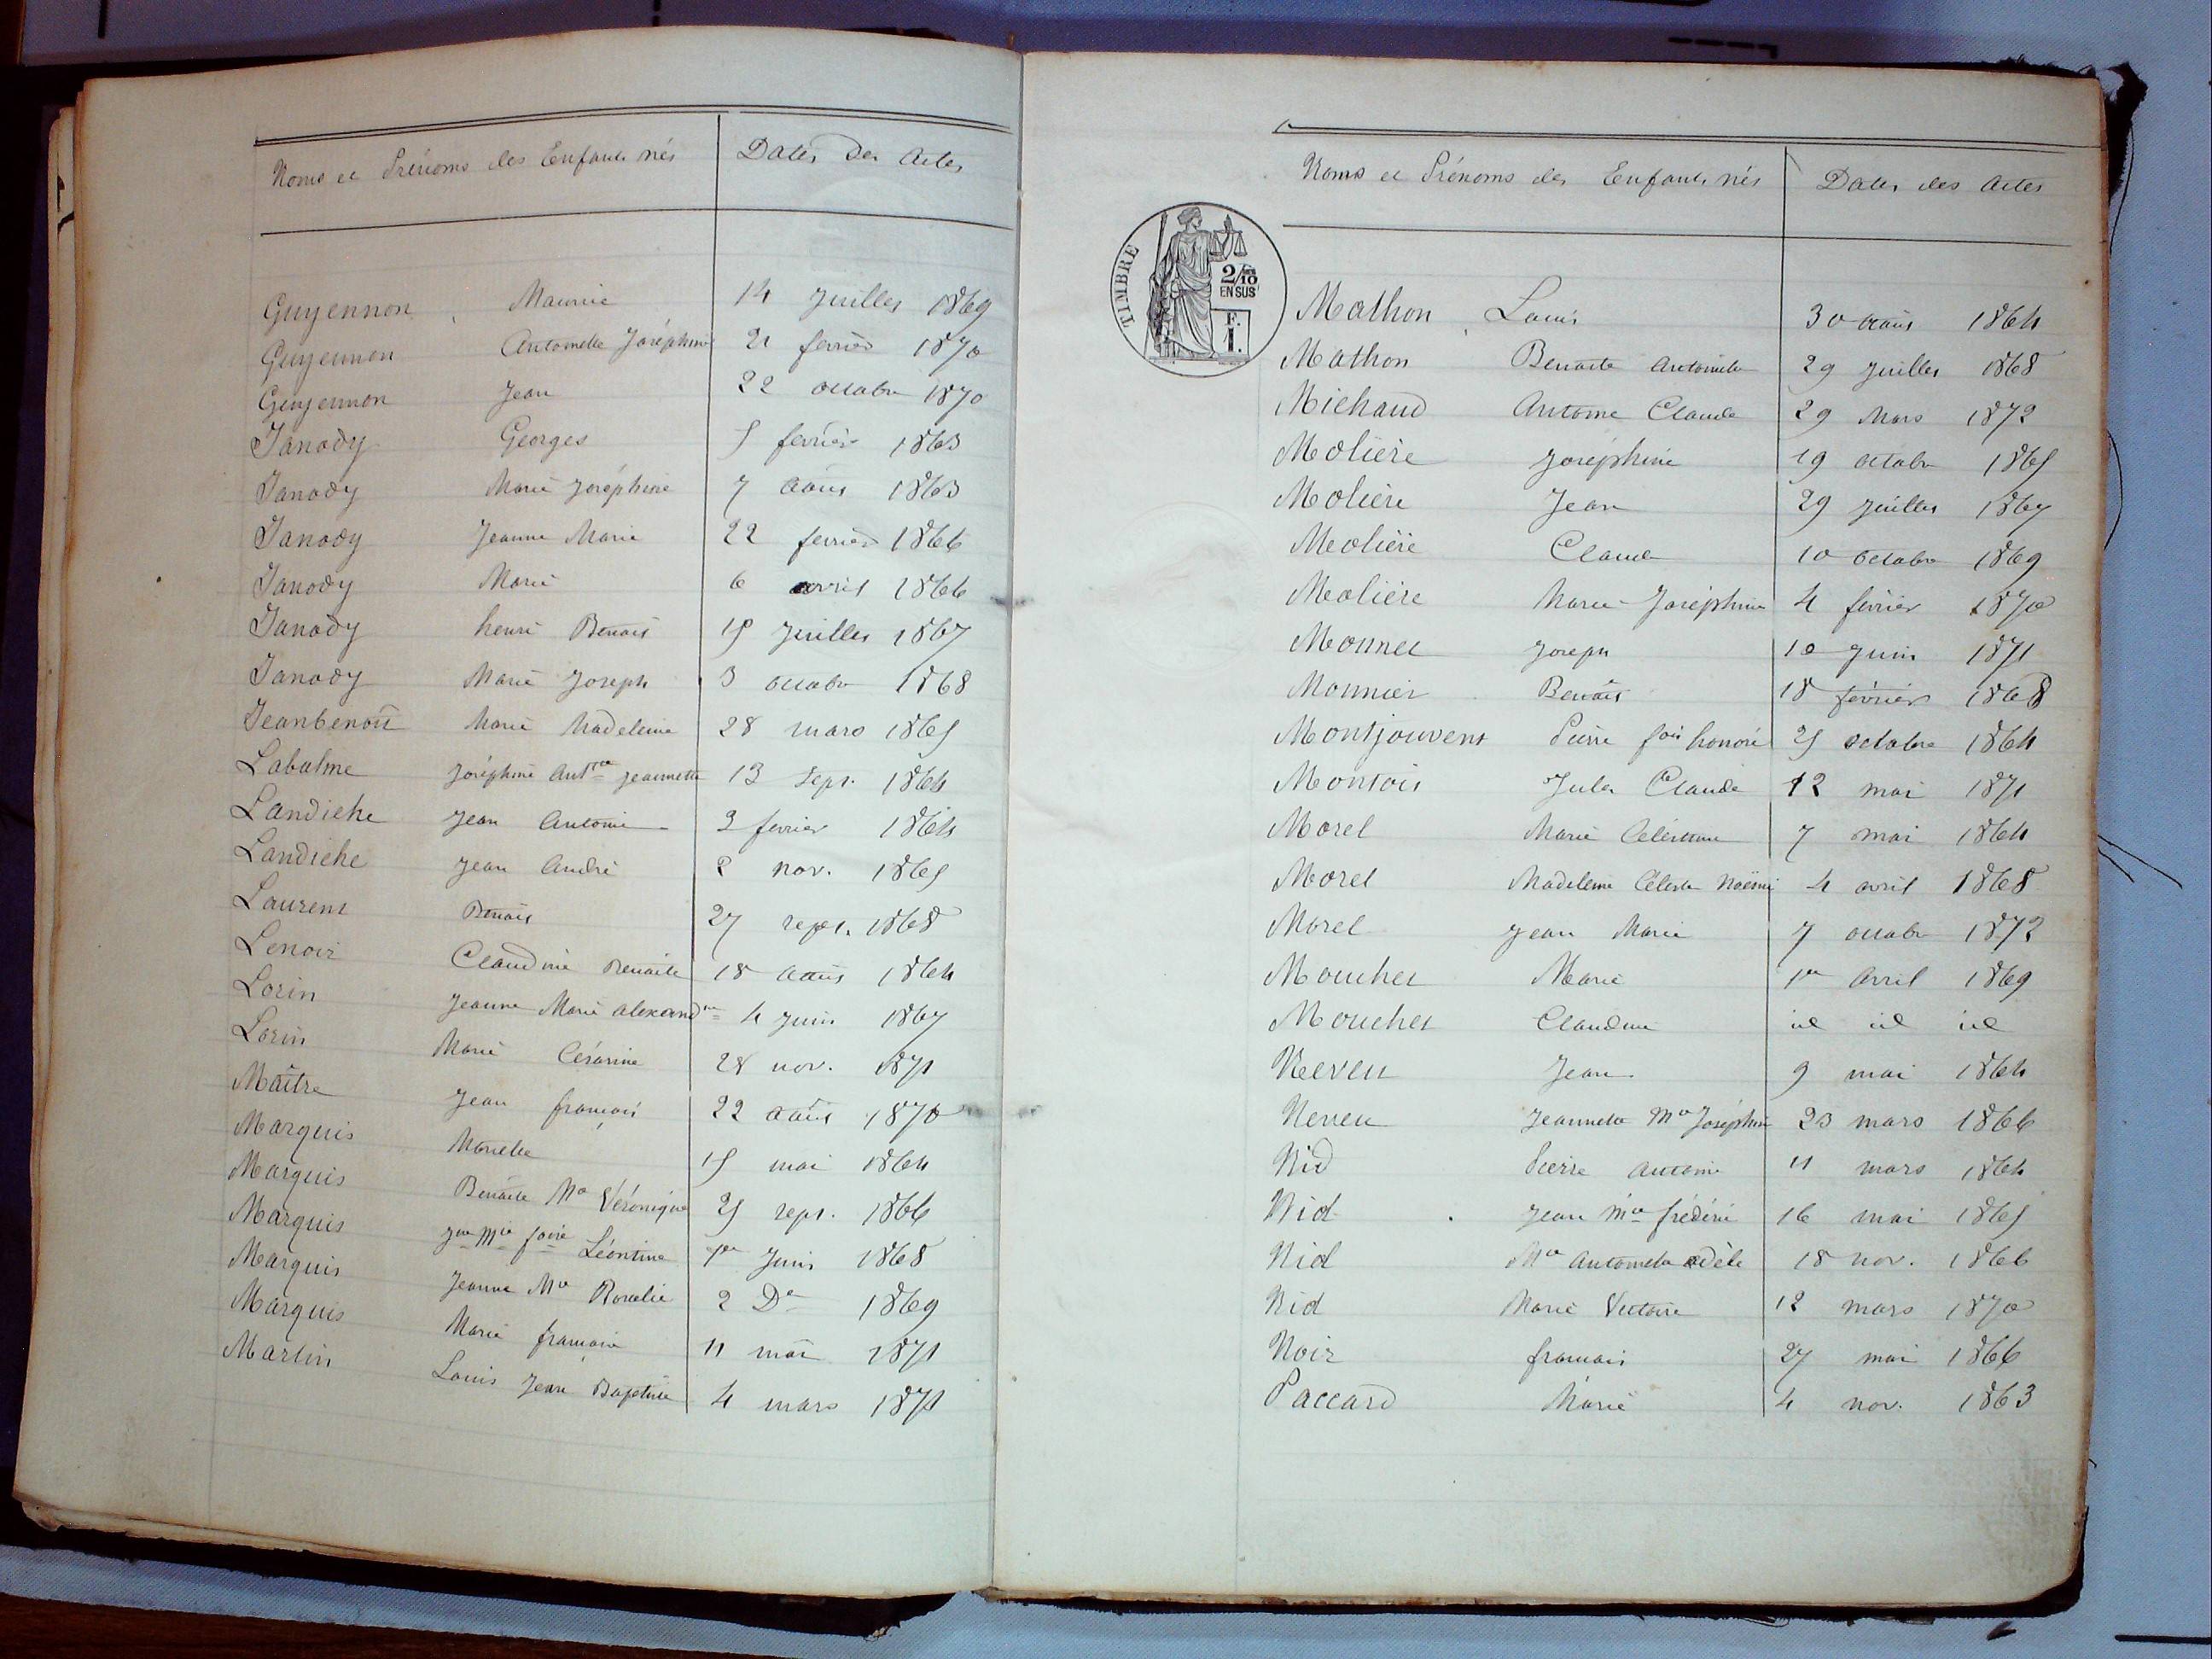 Noms et Prénoms des Enfants nés Dates des Actes
Guyennon Maurice 14 juillet 1869
Guyennon Antoinette Joséphine 21 fevrier 1870
Guyennon Jean 22 octobre 1870
Janody Georges 5 fevrier 1863
Janody Marie Joséphine 7 août 1863
Janody Jeanne Marie 22 fevrier 1866
Janody Marie 6 avril 1866
Janody henri Benoit 15 juillet 1867
Janody Marie Joseph 3 octobre 1868
Jeanbenoît Marie Madeleine 28 mars 1865
Labalme Joséphine Ant.tte Jeannette 13 Sept. 1864
Landiche Jean Antoine 2 fevrier 1864
Landiche Jean André 2 nov. 1865
Laurent Benoit 27 sept. 1868
Lenoir Claudine Benoite 18 août 1864
Lorin Jeanne Marie alexandne 4 juin 1867
Lorin Marie Césarine 28 nov. 1871
Maître Jean françois 22 août 1870
Marquis Mariette 15 mai 1864
Marquis Benoite Mie Véronique 25 sept. 1866
Marquis Jne Mie foise Léontine 1er Juin 1868
Marquis Jeanne Mie Rosalie 2 De 1869
Marquis Marie françoise 11 mai 1871
Martin Louis Jean Baptiste 4 mars 1871
Noms et Prénoms des Enfants nés Dates des Actes
TIMBRE
2/10
EN SUS
F.
1.
Mathon Louis 30 août 1864
Mathon Benoite Antoinette 29 juillet 1868
Michaud Antoine Claude 29 Mars 1872
Molière Joséphine 19 octobre 1865
Molière Jean 29 juillet 1867
Molière Claude 10 octobre 1869
Molière Marie Joséphine 4 février 1870
Monnet Joseph 10 juin 1871
Monnier Benoit 18 février 1868
Montjouvent Pierre fois honoré 25 octobre 1864
Montois Jules Claude 12 mai 1871
Morel Marie Célestine 7 mai 1864
Morel Madeleine Céleste Noémi 4 avril 1868
Morel Jean Marie 7 octobre 1872
Mouchet Marie 1er Avril 1869
Mouchet Claudine id id id
Neveu Jean 9 mai 1864
Neveu Jeannette Mie Joséphine 23 mars 1866
Nid Pierre Antoine 11 mars 1864
Nid Jean Mie frédéric 16 mai 1865
Nid Mie Antoinette adèle 18 nov. 1866
Nid Marie Victoire 12 mars 1870
Noir françois 27 mai 1866
Paccard Marie 4 nov. 1863